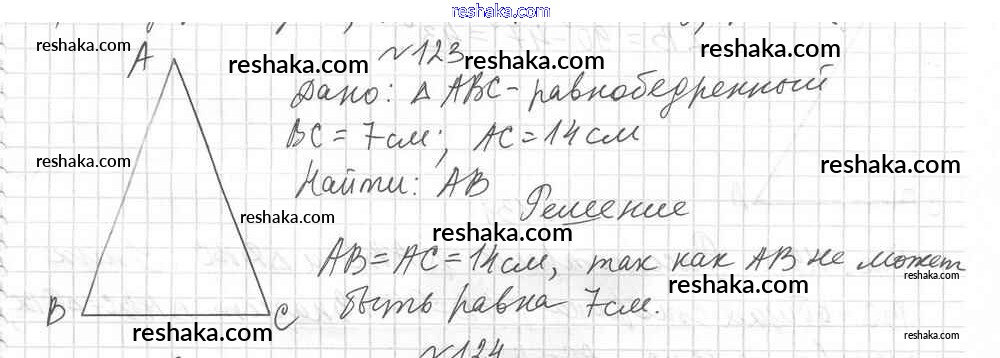 reshaka.com
№123
Дано: Δ ABC - равнобедренный
BC = 7 см; AC = 14 см
Найти: AB
Решение
AB = AC = 14 см, так как AB не может
быть равна 7 см.
A
B
C
№124
reshaka.com
reshaka.com
reshaka.com
reshaka.com
reshaka.com
reshaka.com
reshaka.com
reshaka.com
reshaka.com
reshaka.com
reshaka.com
reshaka.com
reshaka.com